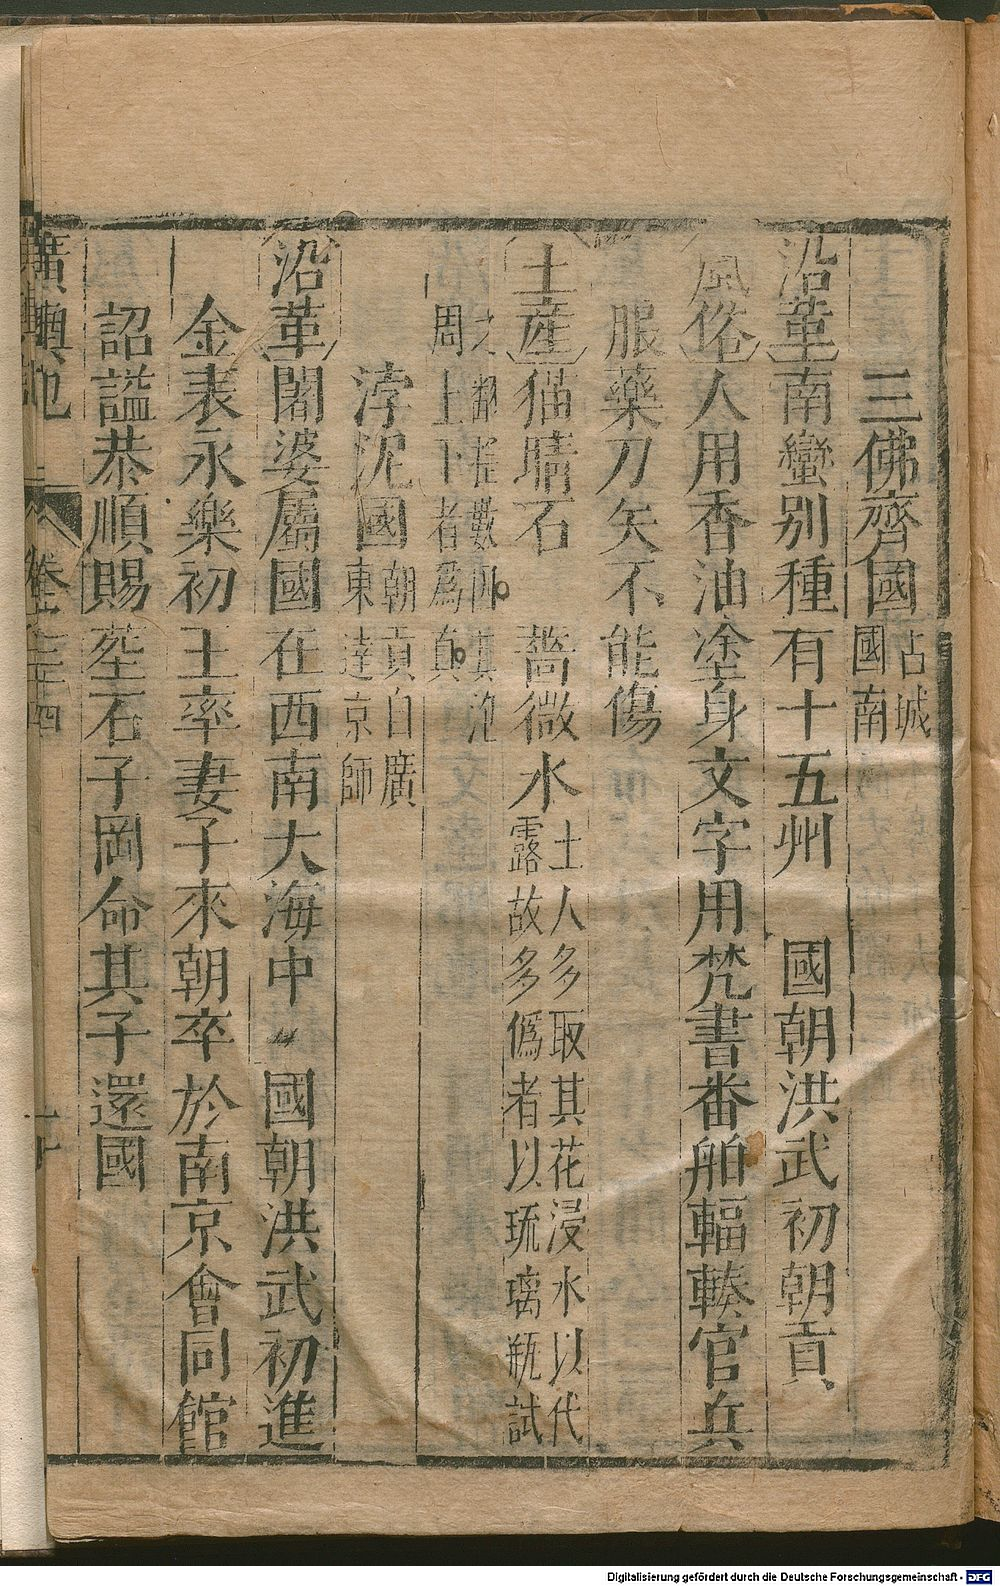 三佛齊國占城國南
沿革南蠻別種有十五州 國朝洪武初朝貢
風俗人用香油塗身文字用梵書番舶輻輳官兵
服藥刀矢不能傷
土産猫睛石 薔薇水土人多取其花浸水以代露故多僞者以琉璃瓶試
之翻搖數四其泡周上下者爲真
浡泥國朝貢自廣東達京師
沿革闍婆屬國在西南大海中 國朝洪武初進
金表永樂初王率妻子來朝卒於南京會同館
詔謚恭順賜塟石子岡命其子還國
廣輿記 卷二十四
Digitalisierung gefördert durch die Deutsche Forschungsgemeinschaft - DFG